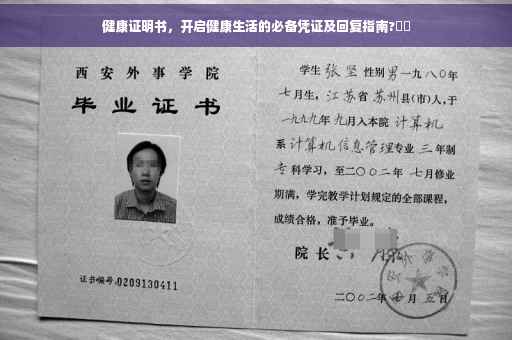 健康证明书，开启健康生活的必备凭证及回复指南?
西安外事学院
毕业证书
证书编号:0209130411
学生 张坚 性别 男 一九八〇年
七月生，江苏省 苏州县(市)人，于
一九九九年 九月入本院 计算机
系 计算机信息管理专业 三 年制
专科学习，至二〇〇二年 七月修业
期满，学完教学计划规定的全部课程，
成绩合格，准予毕业。
院长
二〇〇二年 七 月 五 日